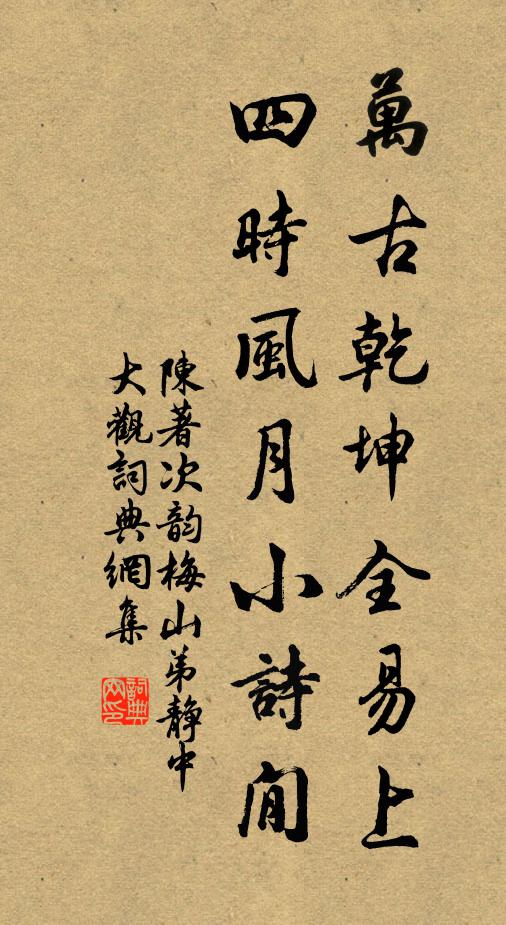 萬古乾坤全易上
四時風月小詩間
陳著次韵梅山弟静中
大觀詞典網集
詞典網印